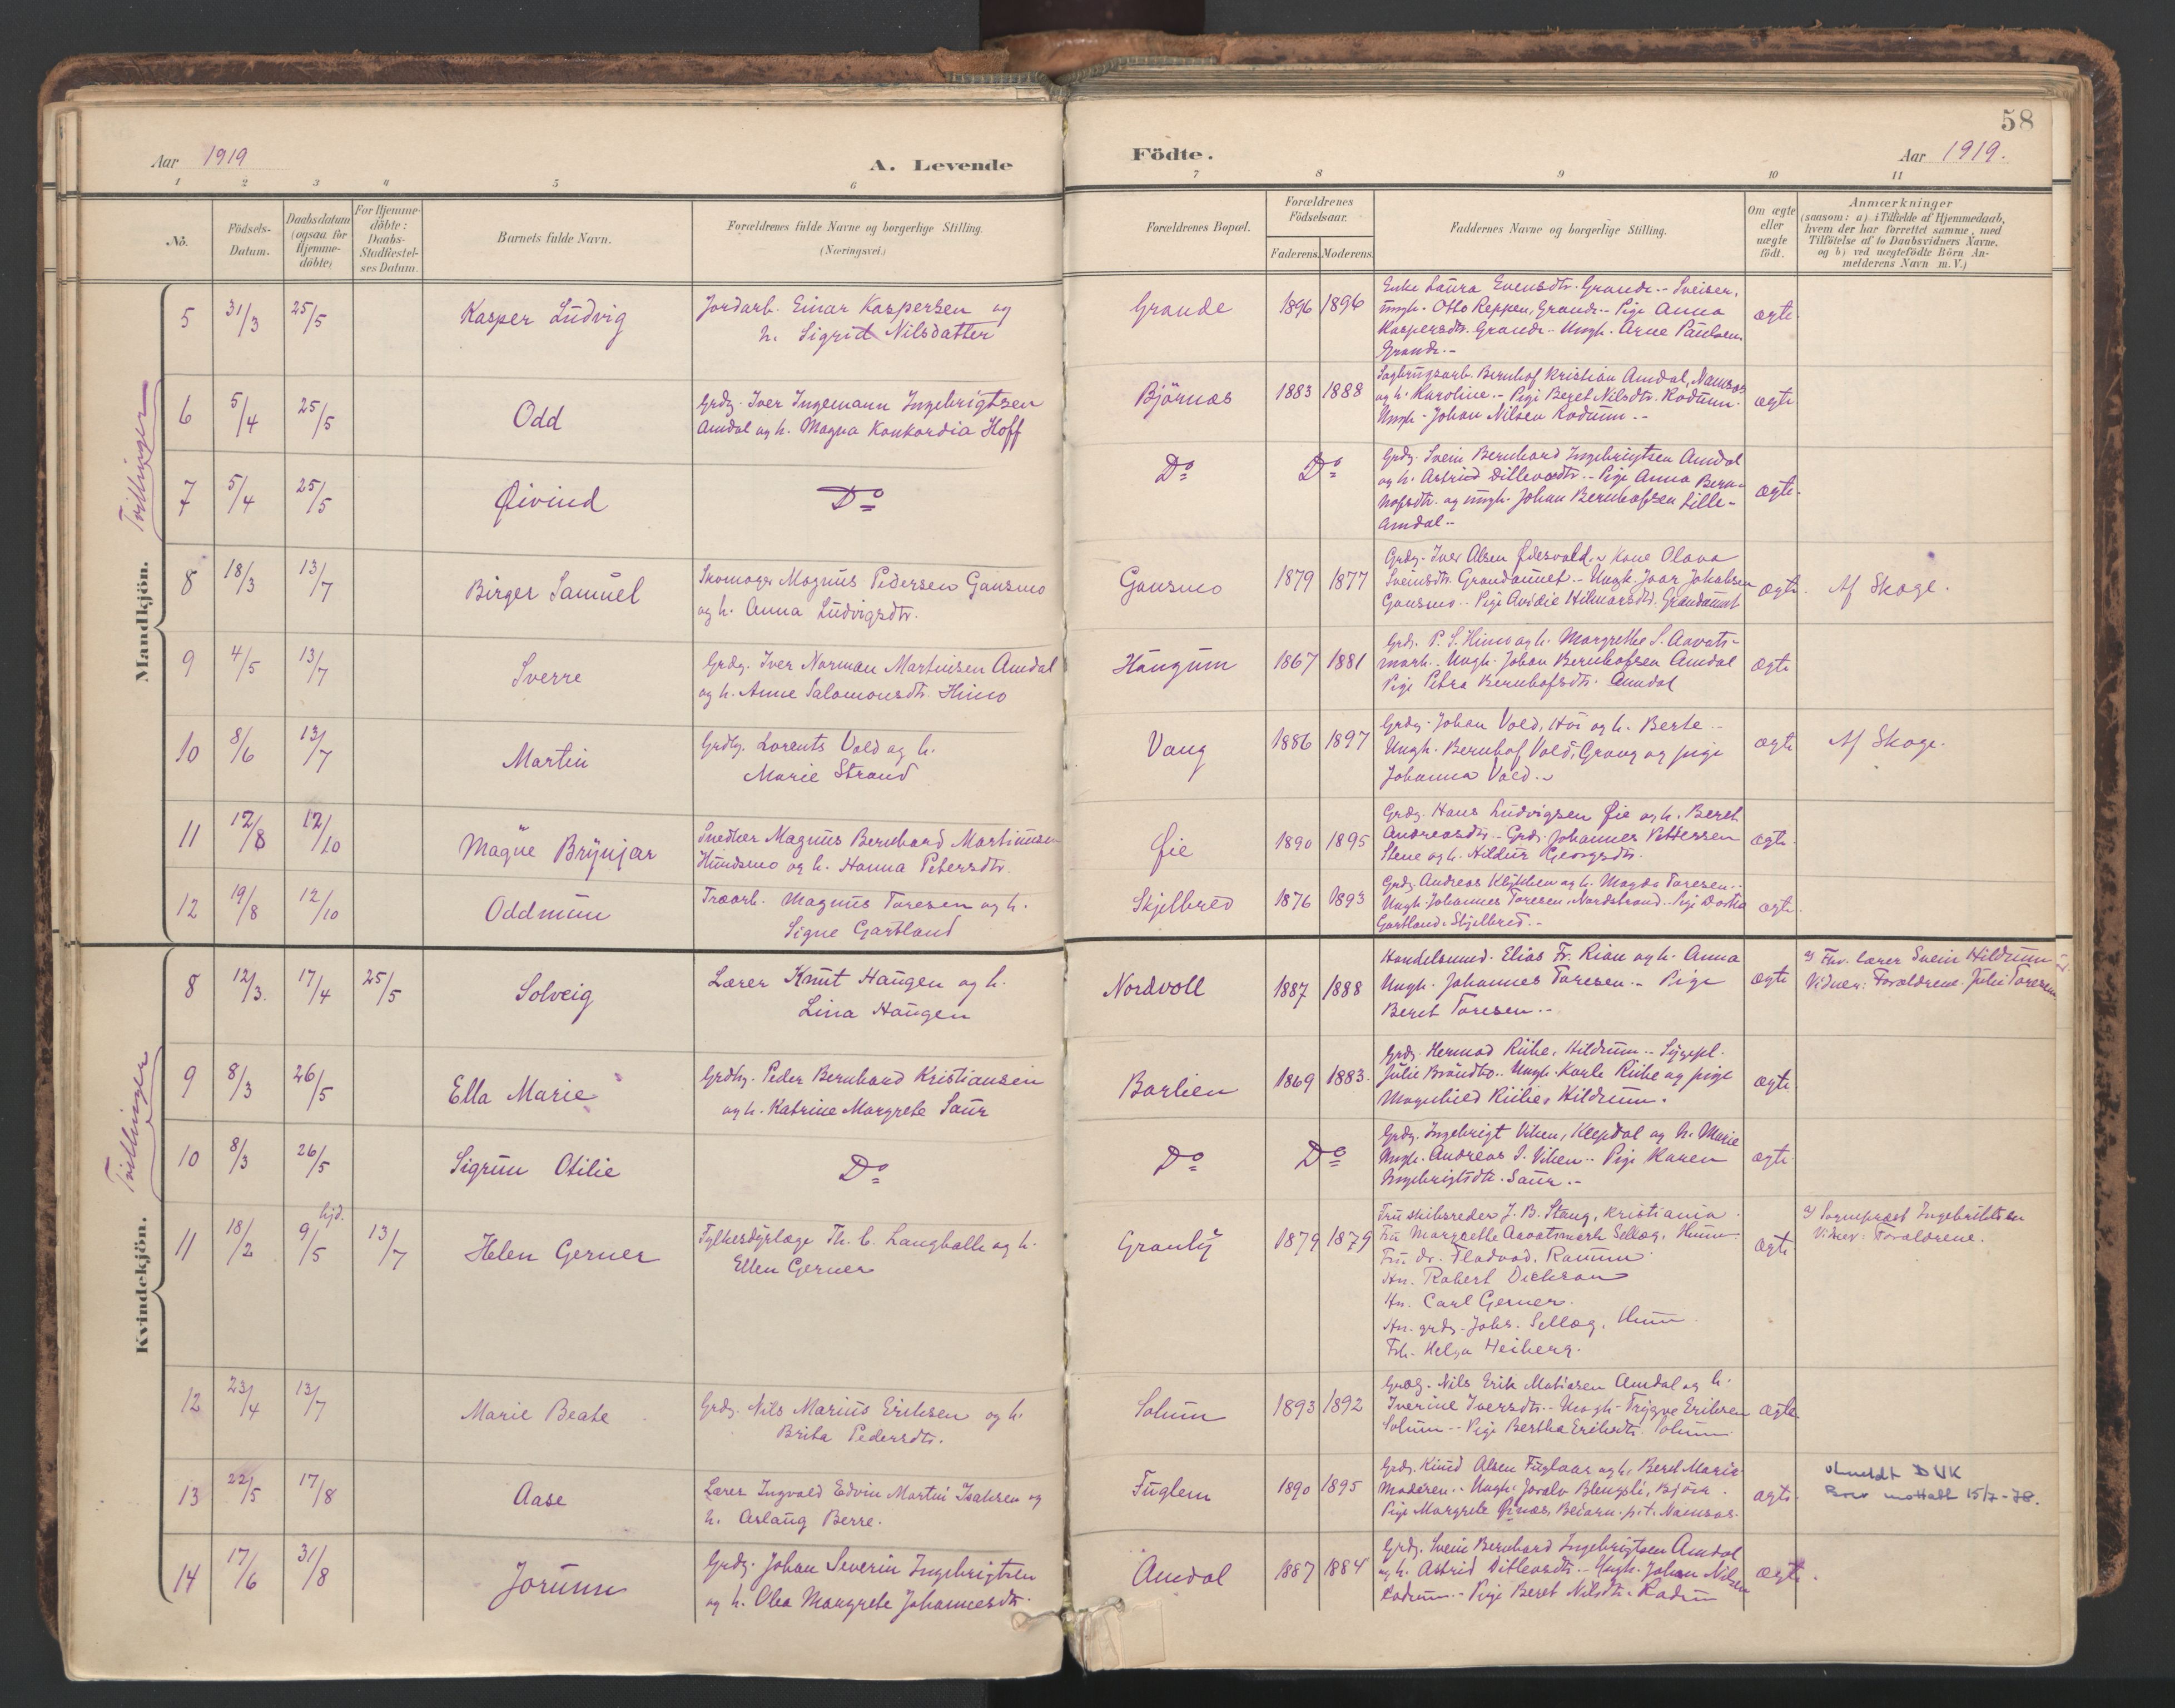 58
Aar 1919
A. Levende
Födte.
Aar 1919.
1 2 3 4 5 6 7 8 9 10 11
No.
Födsels-
Datum.
Daabsdatum
(ogsaa for
Hjemme-
döbte)
For Hjemme-
döbte:
Daabs-
Stadfæstel-
ses Datum.
Barnets fulde Navn.
Forældrenes fulde Navne og borgerlige Stilling.
(Næringsvei.)
Forældrenes Bopæl.
Forældrenes
Födselsaar.
Faderens. Moderens.
Faddernes Navne og borgerlige Stilling.
Om ægte
eller
uægte
födt.
Anmærkninger
(saasom: a) i Tilfælde af Hjemmedaab,
hvem der har forrettet samme, med
Tilföielse af to Daabsvidners Navne,
og b) ved uægtefödte Börn An-
melderens Navn m. V.)
Mandkjön.
Tvillinger
5 31/3 25/5 Kasper Ludvig
Jordarb. Einar Kaspersen og
h. Sigrid Nilsdatter
Grande 1896 1896
Enke Laura Evensdtr. Grande -- Sveiser,
ungk. Otto Reppen, Grande -- Pige Anna
Kaspersdtr. Grande -- Ungk. Arne Paulsen
Grande --
ægte
6 5/4 25/5 Odd
Grdg. Iver Ingemann Ingebrigtsen
Amdal og h. Magna Konkordia Hoff
Björnes 1883 1888
Sagbrugsarb. Bernhof Kristian Amdal, Namsos
og h. Karoline -- Pige Beret Nilsdtr. Rodum.
Ungk. Johan Nilsen Rodum --
ægte
7 5/4 25/5 Øivind
Do
Do Do
Grdg. Svein Bernhard Ingebrigtsen Amdal
og h. Astrid Ditlevsdtr. -- Pige Anna Bern-
hofsdtr. og ungk. Johan Bernhofsen Lille-
Amdal --
ægte.
8 18/3 13/7 Birger Samuel
Skomager Magnus Pedersen Gansmo
og h. Anna Ludvigsdtr.
Gansmo 1879 1877
Grdg. Iver Olsen Ødesvald, Kone Olava
Sveinsdtr. Grandaunet -- Ungk. Ivar Jakobsen
Gansmo -- Pige Ovidie Hilmarsdtr. Grandaunet
ægte. Af Skage.
9 4/5 13/7 Sverre
Grdg. Iver Norman Martinsen Amdal
og h. Anne Salomonsdtr. Himo
Haugum 1867 1881
Grdg. P. S. Himo og h. Margrethe S. Aavats-
mark. Ungk. Johan Bernhofsen Amdal
Pige Petra Bernhofsdtr. Amdal
ægte
10 8/6 13/7 Martin
Grdbg. Lorents Vold og h.
Marie Strand
Vang 1886 1897
Grdg. Johan Vold, og h. Berte --
Ungk. Bernhof Vold, Grong og pige
Johanna Vold --
ægte Af Skage.
11 12/8 12/10 Magne Brynjar
Snedker Magnus Bernhard Martinsen
Hundsmo og h. Hanna Petersdtr.
Øie 1890 1895
Grdg. Hans Ludvigsen Øie og h. Beret
Andreasdtr. -- Grdg. Johannes Pettersen
Stene og h. Hildur Georgsdtr.
ægte.
12 19/8 12/10 Oddmun
Træarb. Magnus Toresen og h.
Signe Gartland
Skjelbred 1876 1893
Grdg. Andreas Klykken og h. Magda Toresen --
Ungk. Johannes Toresen, Nordstrand -- Pige Dortea
Gartland, Skjelbred --
ægte.
Kvindekjön.
Tvillinger
8 12/3. 17/4 25/5 Solveig
Lærer Knut Haugen og h.
Lina Haugen
Nordvoll 1887 1888
Handelsmand Elias Fr. Rian og h. Anna
Ungk. Johannes Toresen -- Pige
Beret Toresen --
ægte
a) Fhv. lærer Svein Hildrum
Vidner: Forældrene. Julie Toresen
9 8/3 26/5 Ella Marie
Grdbg. Peder Bernhard Kristiansen
og h. Katrine Margrete Saur
Barlien 1869 1883.
Grdg. Hermod Riibe, Hildrum -- Sygepl.
Julie Brandbo -- Ungk. Karle Riibe og pige
Magnhild Riibe, Hildrum.
ægte
10 8/3 26/5 Sigrun Otilie
Do
Do Do
Grdg. Ingebrigt Viken, Klepdal og h. Marie
Ungk. Andreas I. Viken -- Pige Karen
Ingebrigtsdtr. Saur --
ægte
11 18/2 hjd. 9/5 13/7 Helen Gerner
Fylkesdyrlæge Th. C. Langballe og h.
Ellen Gerner
Granly 1879 1879
Fru skibsreder J. B. Stang, Kristiania.
Fru Margrethe Aavatsmark Sellæg, Hunn.
Fru dr. Fladvad. Ranum
Hr. Robert Dickson
Hr. Carl Gerner.
Hr. grdg. Johs. Sellæg, Hunn.
Frk. Helga Heiberg.
ægte
a) Sogneprest Ingebriktsen
Vidner: Forældrene.
12 23/4 13/7 Marie Beate
Grdg. Nils Marius Eriksen og h.
Brita Pedersdtr.
Solum 1893 1892
Grdg. Nils Erik Matiasen Amdal og h.
Iverine Iversdtr. -- Ungk. Trygve Eriksen
Solum -- Pige Bertha Eriksdtr. Solum
ægte
13 22/5 17/8 Aase
Lærer Ingvald Edvin Martin Isaksen og
h. Aslaug Berre.
Fuglem 1890 1895
Grdg. Knud Olsen Fuglaas og h. Beret Marie
Moderen -- Ungk. Joralv Blengsli, Björa.
Pige Margrete Osnes, Beiarn p.t. Namsos.
ægte.
Utmeldt DNK
Brev mottatt 15/7-78.
14 17/6 31/8 Jorunn
Grdg. Johan Severin Ingebrigtsen
og h. Olea Margrete Johannesdtr.
Amdal 1887 1884
Grdg. Svein Bernhard Ingebrigtsen Amdal
og h. Astrid Ditlevsdtr. -- Ungk. Johan Nilsen
Rodum -- Pige Beret Nilsdtr. Rodum
ægte.